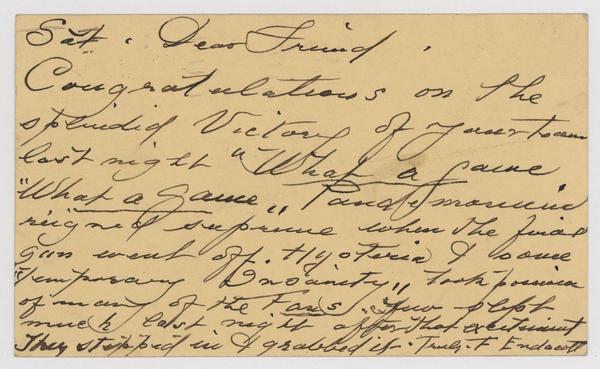 Sat. Dear Friend,
Congratulations on the
splendid Victory of your team
last night "What a game
"What a game,, Pandemonium
reigned supreme when the final
gun went off. Hysteria & some
"Temporary Insanity,, took possession
of many of the Fans. Few slept
much last night after that excitement
They stepped in & grabbed it. Truly. F Endacott